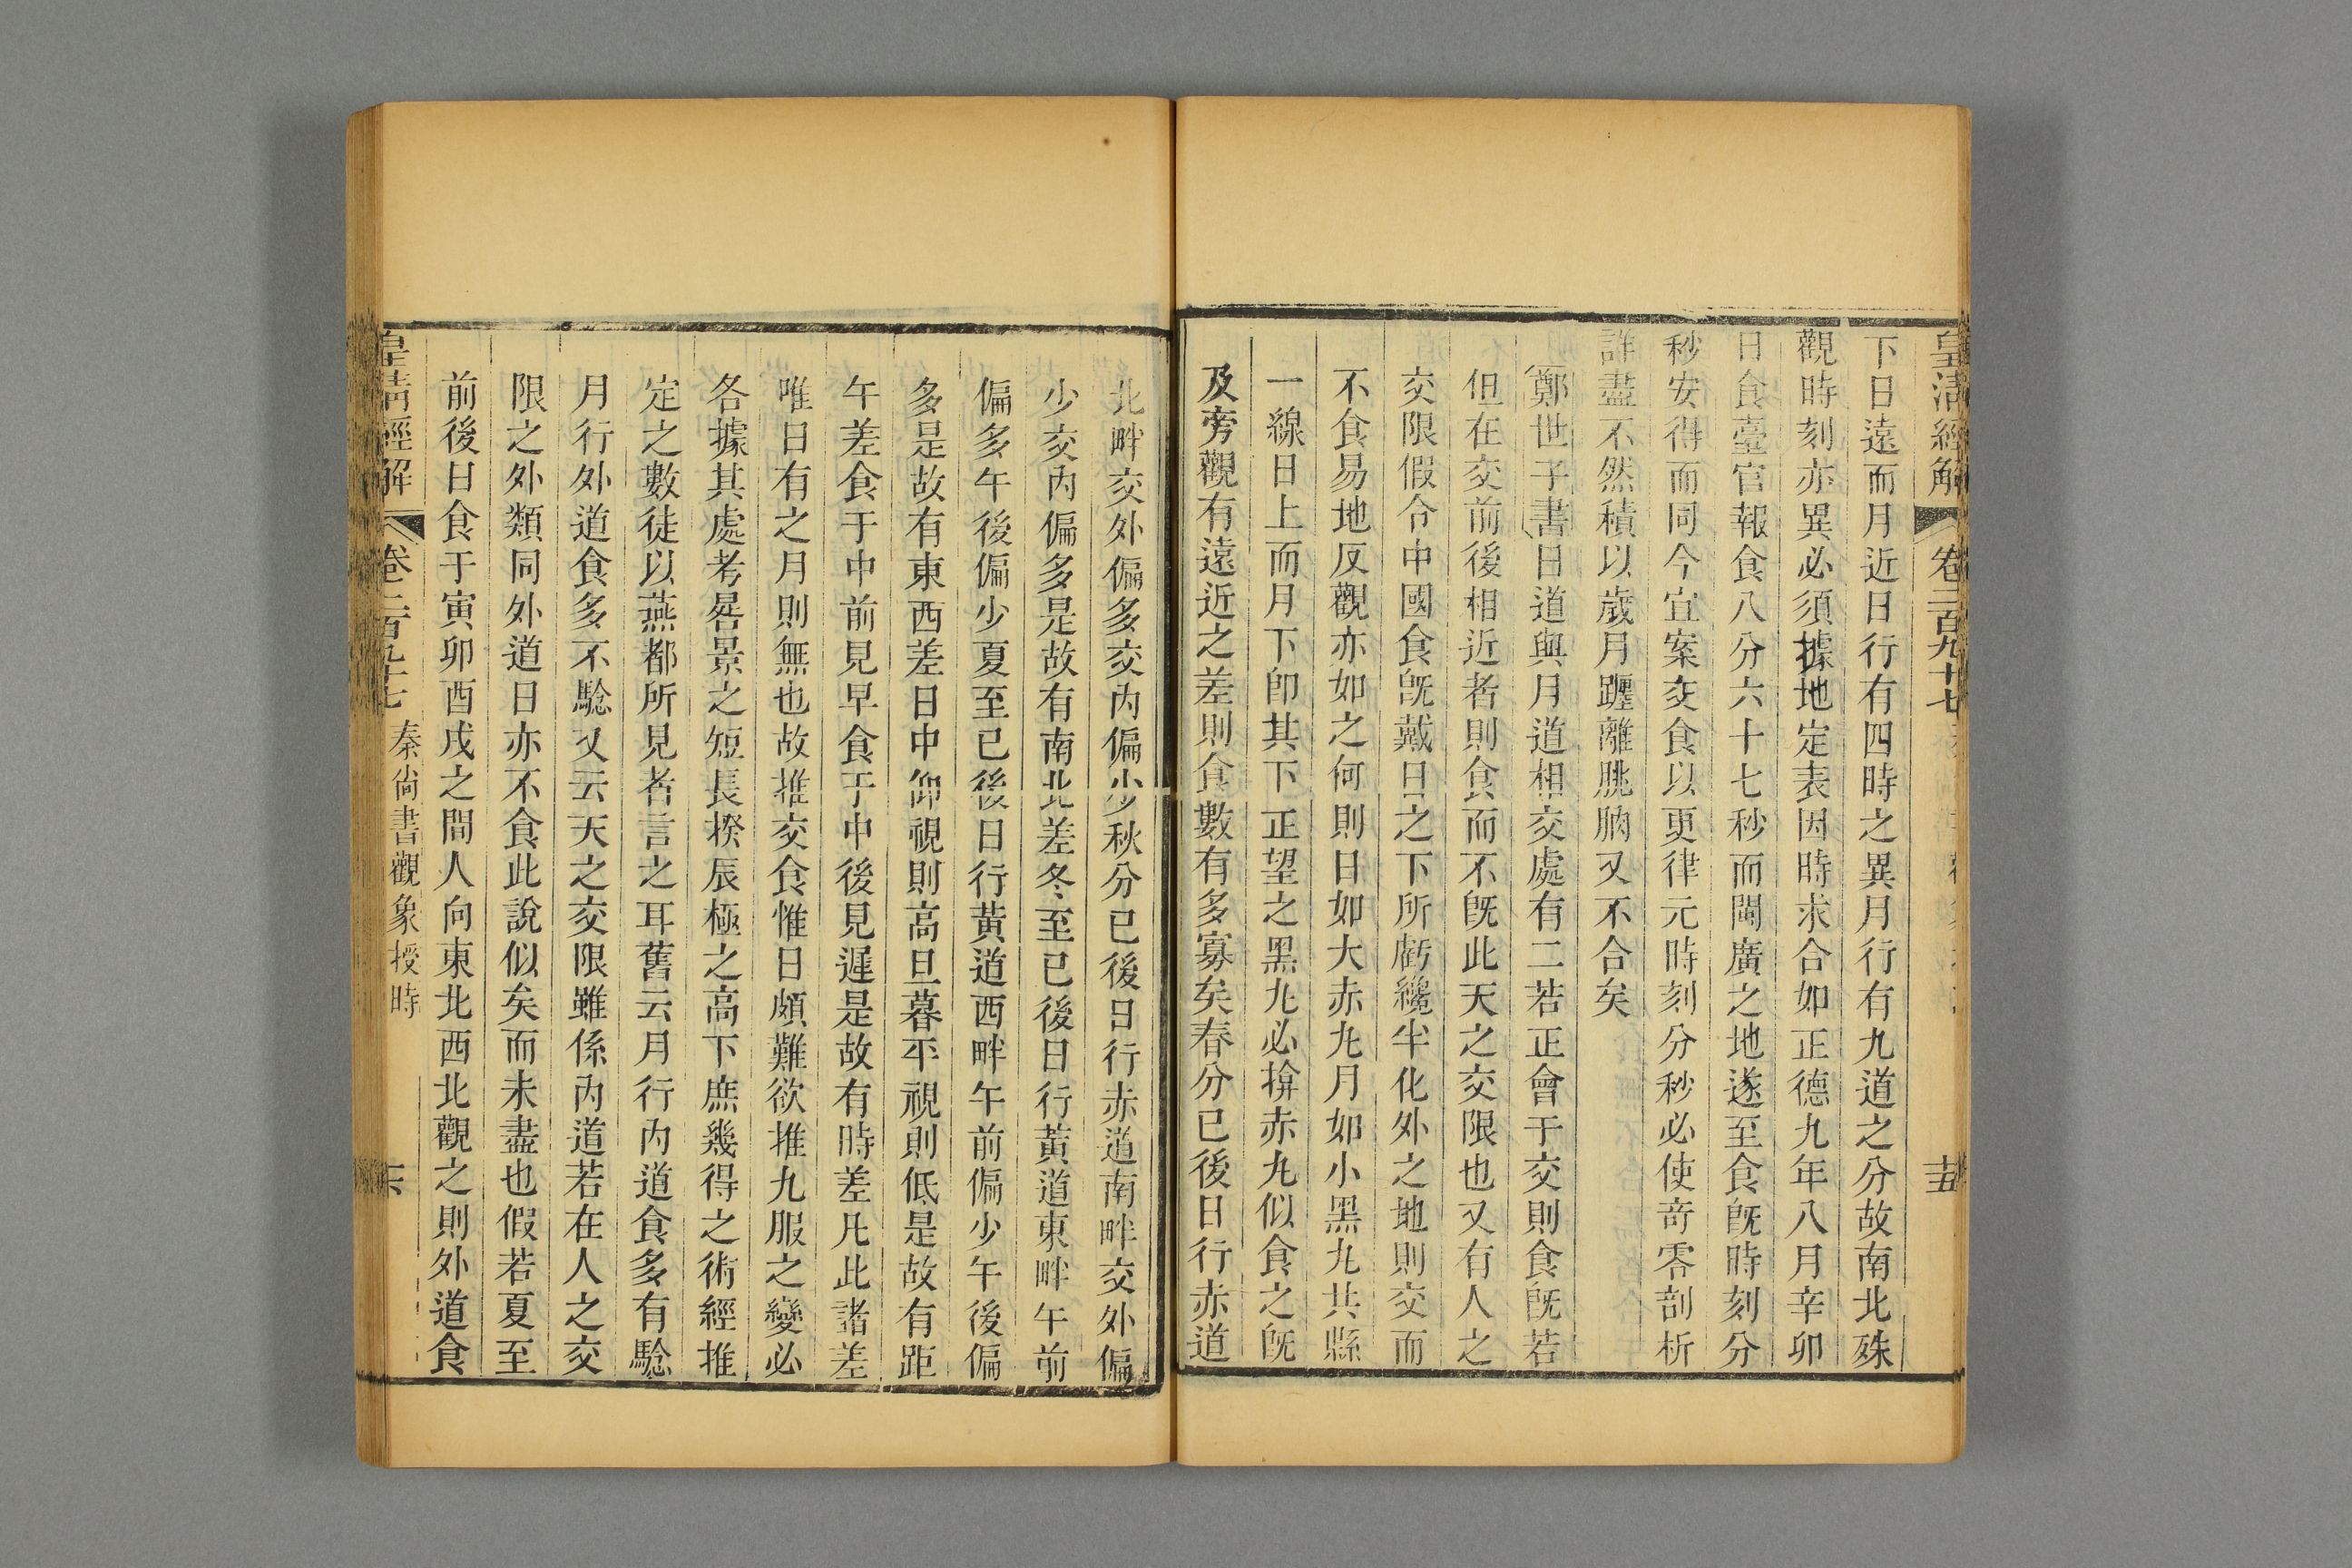 皇清經解 卷二百九十七 十五
下日遠而月近日行有四時之異月行有九道之分故南北殊
觀時刻亦異必須據地定表因時求合如正德九年八月辛卯
日食臺官報食八分六十七秒而閩廣之地遂至食旣時刻分
秒安得而同今宜案交食以更律元時刻分秒必使奇零剖析
詳盡不然積以歲月躔離朓朒又不合矣
鄭世子書日道與月道相交處有二若正會于交則食旣若
但在交前後相近者則食而不旣此天之交限也又有人之
交限假令中國食旣戴日之下所虧纔半化外之地則交而
不食易地反觀亦如之何則日如大赤丸月如小黑丸共縣
一線日上而月下卽其下正望之黑丸必揜赤丸似食之旣
及旁觀有遠近之差則食數有多寡矣春分已後日行赤道
北畔交外偏多交內偏少秋分已後日行赤道南畔交外偏
少交內偏多是故有南北差冬至已後日行黃道東畔午前
偏多午後偏少夏至已後日行黃道西畔午前偏少午後偏
多是故有東西差日中仰視則高旦暮平視則低是故有距
午差食于中前見早食于中後見遲是故有時差凡此諸差
唯日有之月則無也故推交食惟日頗難欲推九服之變必
各據其處考晷景之短長揆辰極之高下庶幾得之術經推
定之數徒以燕都所見者言之耳舊云月行內道食多有驗
月行外道食多不驗又云天之交限雖係內道若在人之交
限之外類同外道日亦不食此說似矣而未盡也假若夏至
前後日食于寅卯酉戌之間人向東北西北觀之則外道食
皇清經解 卷二百九十七 秦尙書觀象授時 十六